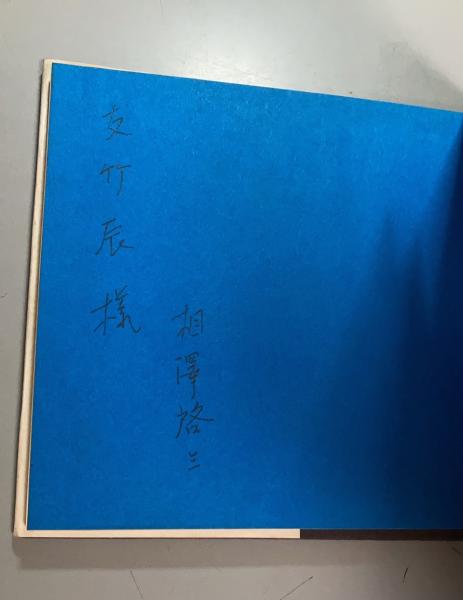 友竹辰様
相澤啓三